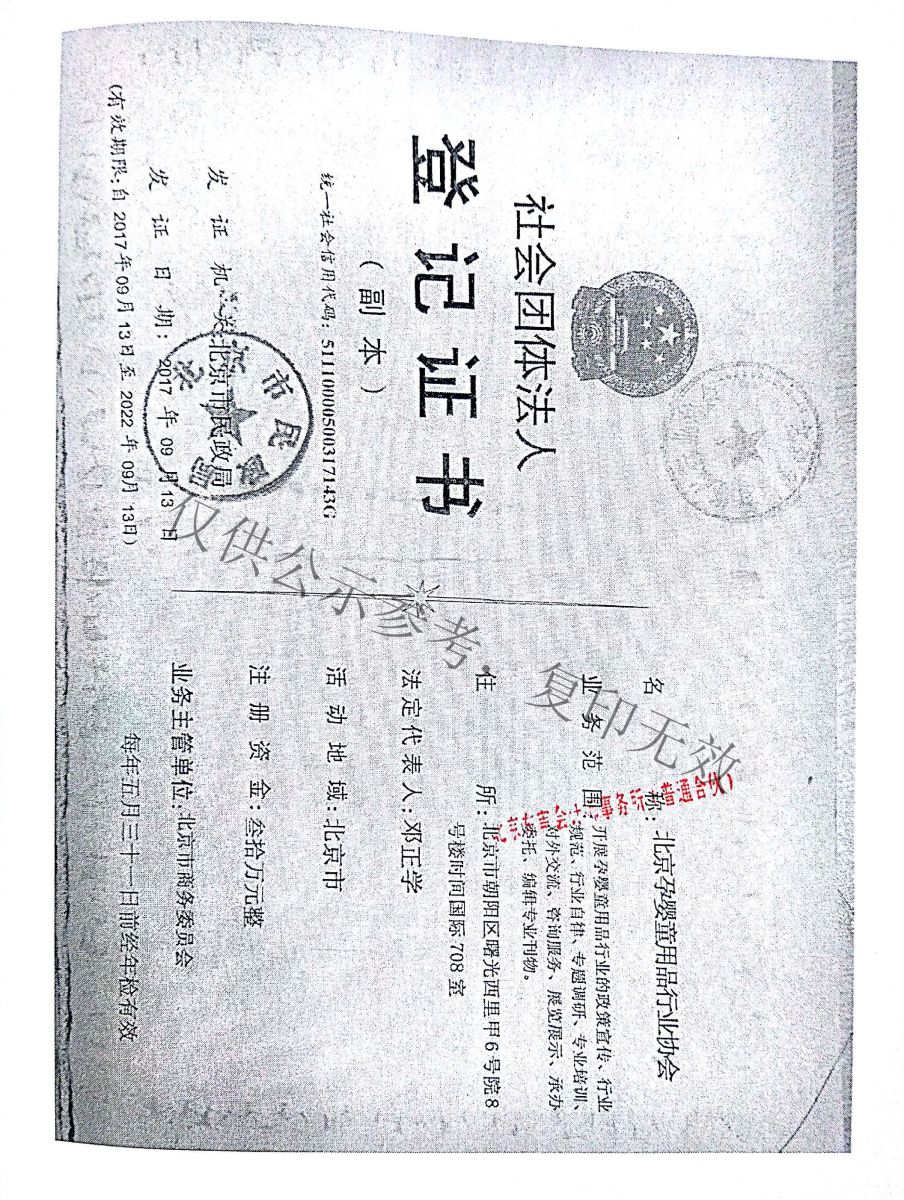 社会团体法人
登记证书
（副本）
统一社会信用代码：51110000500317143G
发证机关：北京市民政局
发证日期：2017年09月13日
（有效期限：自2017年09月13日至2022年09月13日）
名称：北京孕婴童用品行业协会
业务范围：开展孕婴童用品行业的政策宣传、行业
规范、行业自律、专题调研、专业培训、
对外交流、咨询服务、展览展示、承办
委托、编辑专业刊物。
住所：北京市朝阳区曙光西里甲6号院8
号楼时间国际708室
法定代表人：邓正学
活动地域：北京市
注册资金：叁拾万元整
业务主管单位：北京市商务委员会
每年五月三十一日前经年检有效
仅供公示参考，复印无效
事务所（普通合伙）
市民
局